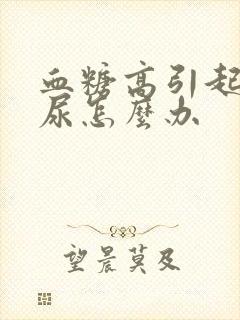 血糖高引起
尿怎麼办
望晨莫及